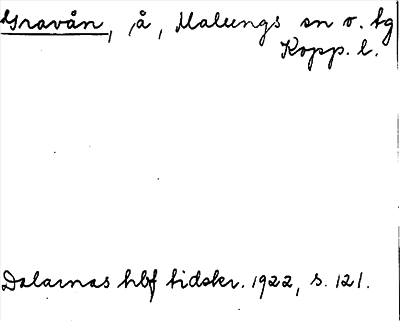 Gravån, å, Malungs sn o. tg
Kopp. l.
Dalarnas hbf tidskr. 1922, s. 121.